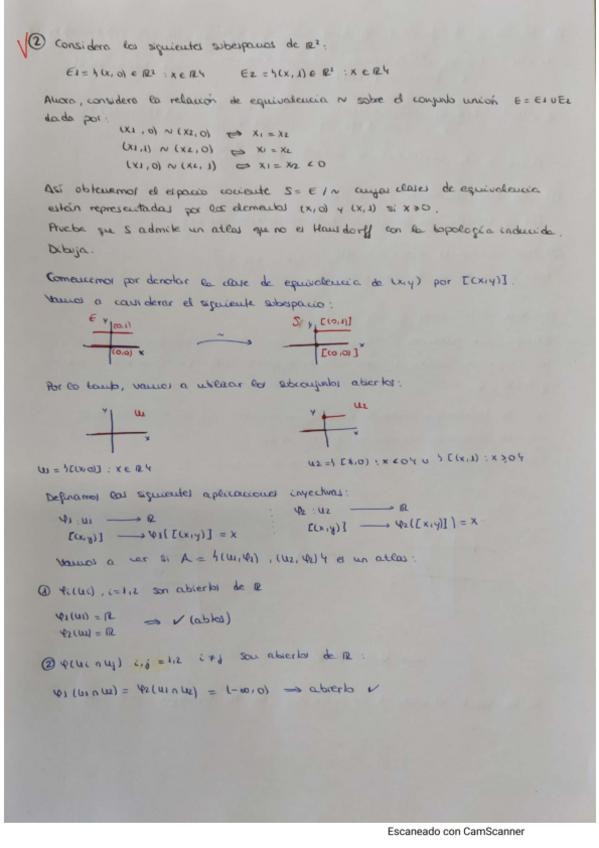 ② Considera los siguientes subespacios de ℝ²:
E1 = {(x, 0) ∈ ℝ² : x ∈ ℝ} E2 = {(x, 1) ∈ ℝ² : x ∈ ℝ}
Ahora, considera la relación de equivalencia ~ sobre el conjunto unión E = E1 ∪ E2
dada por:
(x1, 0) ~ (x2, 0) ⇔ x1 = x2
(x1, 1) ~ (x2, 0) ⇔ x1 = x2
(x1, 0) ~ (x2, 1) ⇔ x1 = x2 < 0
Así obtenemos el espacio cociente S = E / ~ cuyas clases de equivalencia
están representadas por los elementos (x, 0) y (x, 1) si x ≥ 0.
Prueba que S admite un atlas que no es Hausdorff con la topología inducida.
Dibuja.
Comencemos por denotar la clase de equivalencia de (x, y) por [(x, y)].
Vamos a considerar el siguiente subespacio:
E y (0,1) (0,0) x ~ S y [(0,1)] [(0,0)] x
Por lo tanto, vamos a utilizar los subconjuntos abiertos:
y U1 x y U2 x
U1 = {[(x,0)] : x ∈ ℝ} U2 = {[(x,0) : x < 0} ∪ {[(x,1) : x ≥ 0}
Definamos las siguientes aplicaciones inyectivas:
φ1 : U1 → ℝ φ2 : U2 → ℝ
[(x,y)] → φ1([(x,y)] = x [(x,y)] → φ2([x,y)]) = x
Vamos a ver si A = {(U1, φ1), (U2, φ2)} es un atlas:
① φi(Ui), i = 1,2 son abiertos de ℝ
φ1(U1) = ℝ
φ2(U2) = ℝ ⇒ ✓ (abtos)
② φ(Ui ∩ Uj) i,j = 1,2 i ≠ j son abiertos de ℝ:
φ1(U1 ∩ U2) = φ2(U1 ∩ U2) = (-∞, 0) ⇒ abierto ✓
Escaneado con CamScanner